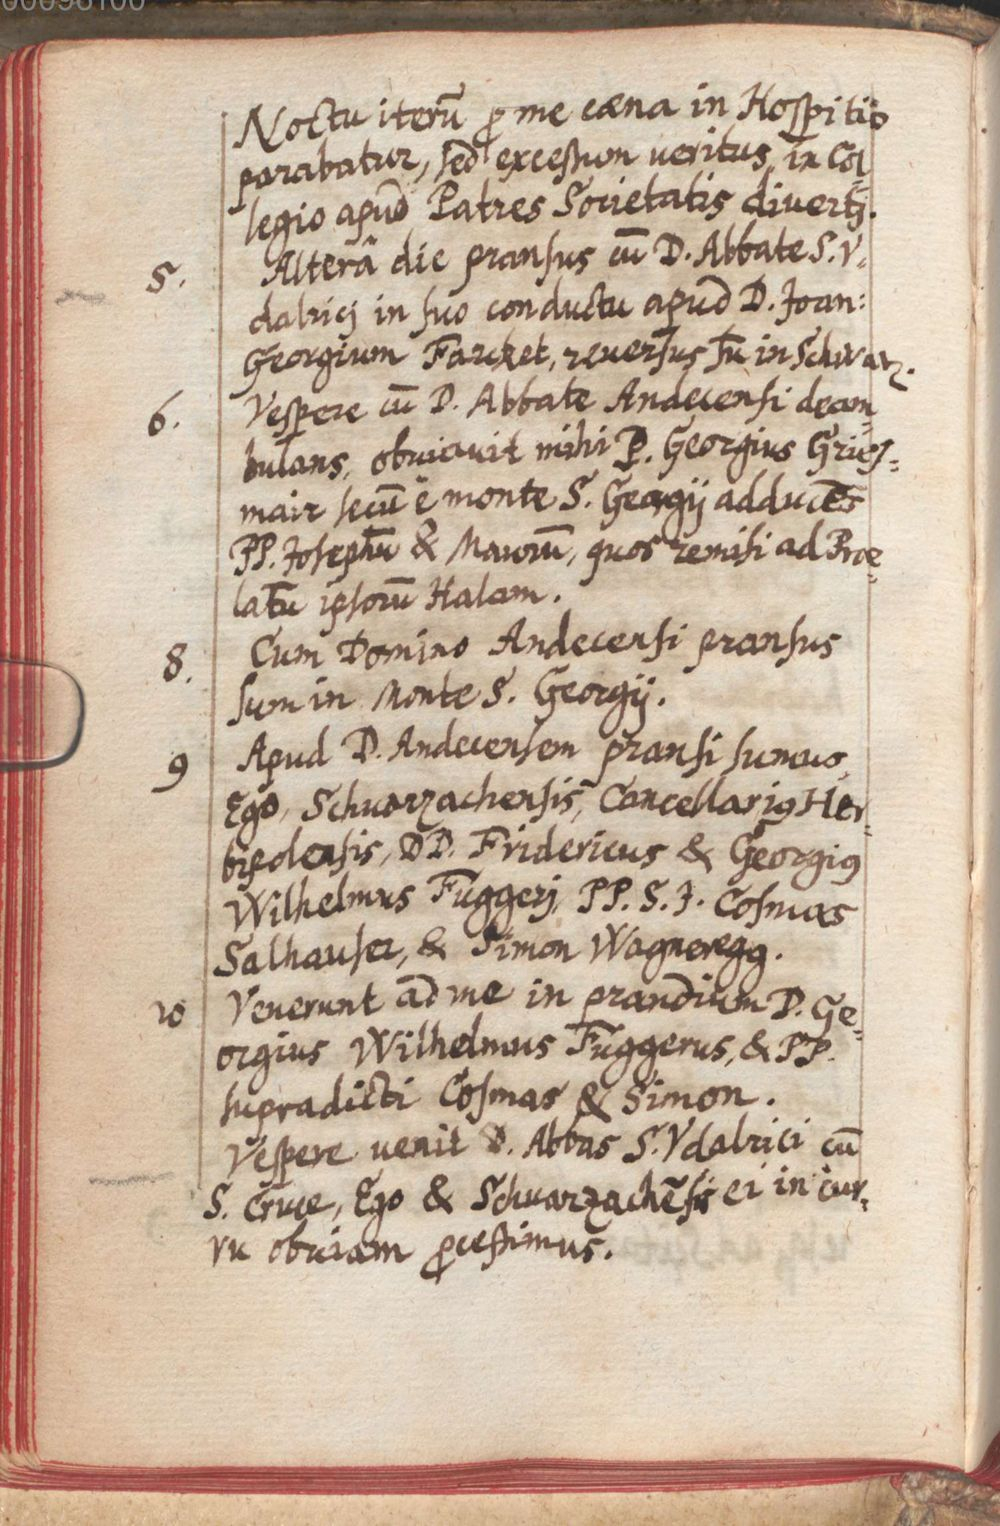 00096100
Noctu iterū ꝓ me cæna in Hospitio
parabatur, sed excessum veritus, in Col
legio apud Patres Societatis divertj.
5. Alterâ die pransus cū D. Abbate S. V-
dalricj in suo conductu apud D. Joan:
Georgium Farcket, reversus sū in Schwatz.
6. Vespere cū D. Abbate Andecensi deam-
bulans, obviavit mihi P. Georgius Gries-
mair secū è monte S. Georgij adducēs
PP. Josephū & Maurū, quos remisi ad Præ-
latū ipsorū Halam.
8. Cum Domino Andecensi pransus
sum in Monte S. Georgij.
9 Apud D. Andecensem pransi sumus
Ego, Schwarzachensis, Cancellariꝰ Her-
bipolensis, DD. Fridericus & Georgiꝰ
Wilhelmus Fuggerj, PP. S. J. Cosmas
Salhauser, & Simon Wagneregg.
10 Venerunt ad me in prandium D. Ge-
orgius Wilhelmus Fuggerus, & PP.
supradicti Cosmas & Simon.
Vespere venit D. Abbas S. Vdalrici cū
S. Cruce, Ego & Schwarzachēsis ei in cur-
ru obviam ꝓcessimus.